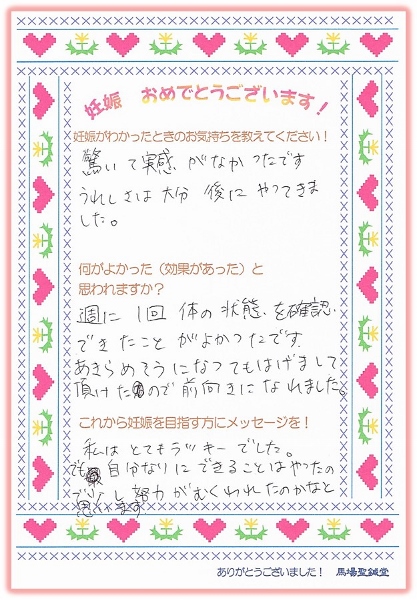 妊娠 おめでとうございます！
妊娠がわかったときのお気持ちを教えてください！
驚いて実感がなかったです
うれしさは大分後にやってきま
した。
何がよかった（効果があった）と
思われますか？
週に1回 体の状態を確認
できたことがよかったです
あきらめそうになってもはげまして
頂けたので前向きになれました。
これから妊娠を目指す方にメッセージを！
私はとてもラッキーでした。
でも自分なりにできることはやったの
で少し努力がむくわれたのかなと
思います
ありがとうございました！ 馬場聖鍼堂